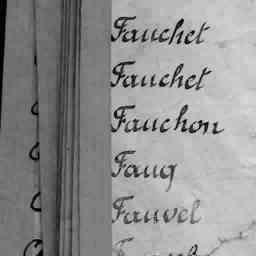 Fauchet
Fauchet
Fauchon
Faug
Fauvel